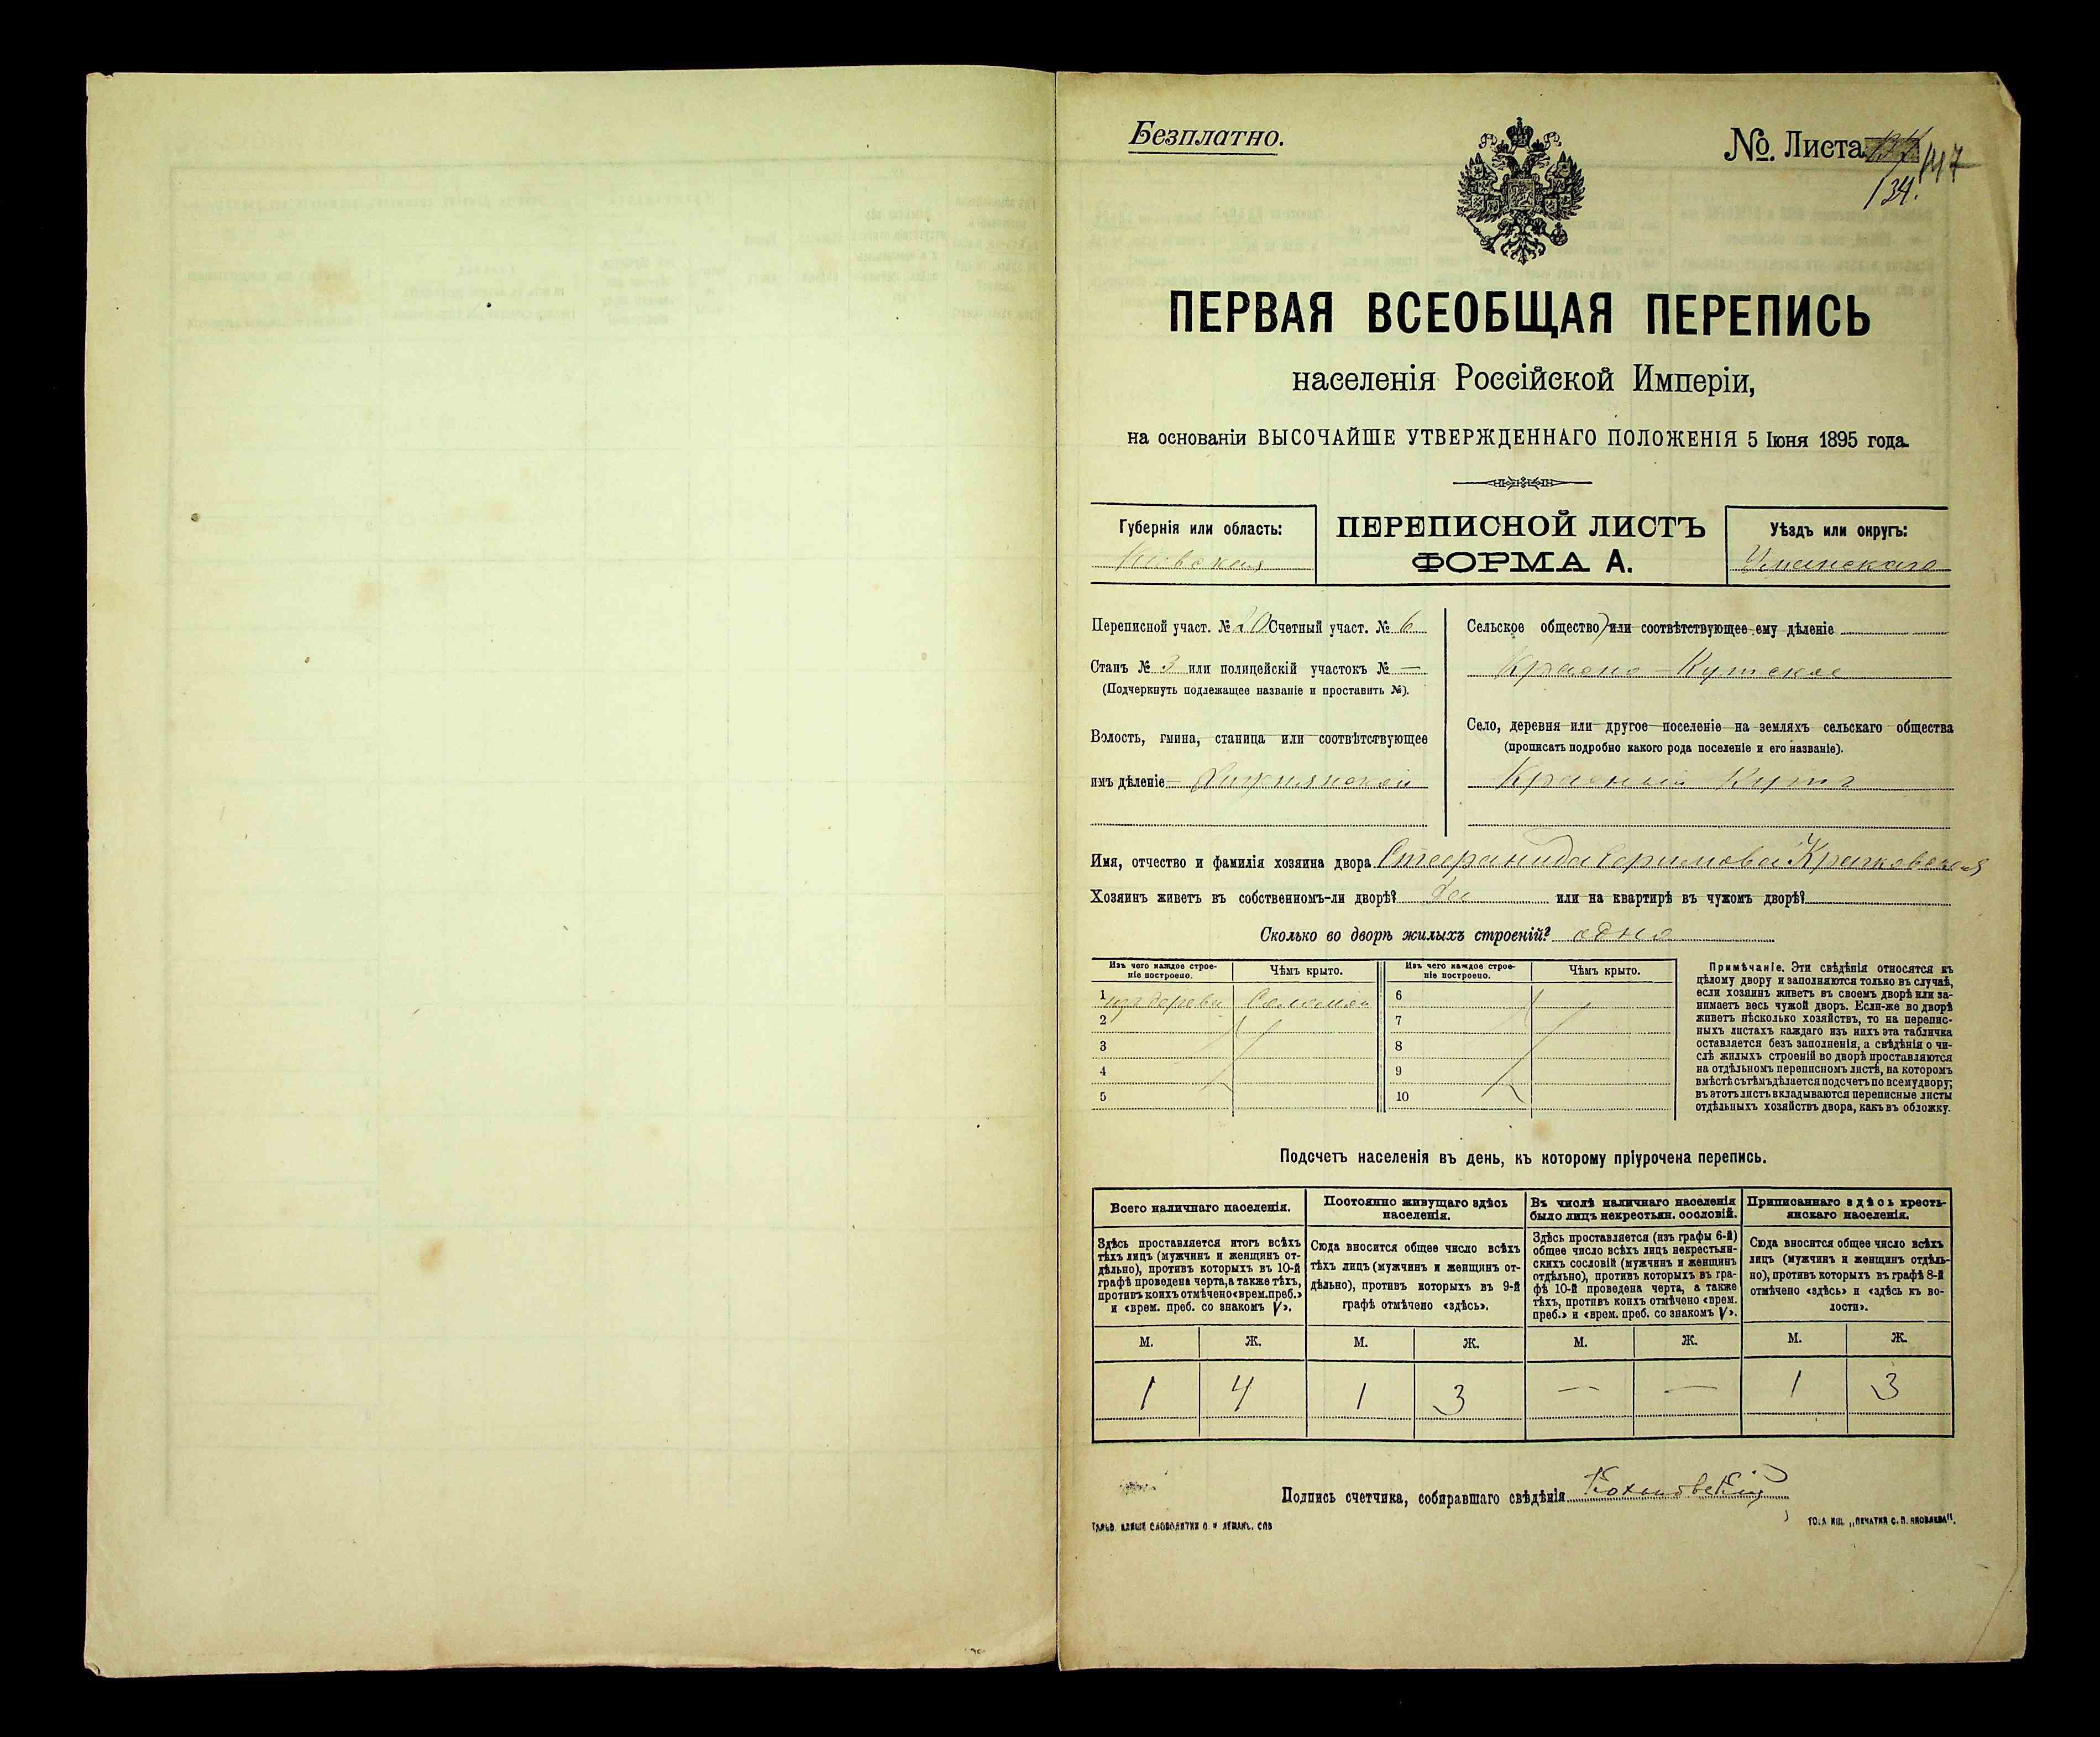 Безплатно.
№. Листа 147
134.
ПЕРВАЯ ВСЕОБЩАЯ ПЕРЕПИСЬ
населенія Россійской Имперіи,
на основаніи ВЫСОЧАЙШЕ УТВЕРЖДЕННАГО ПОЛОЖЕНІЯ 5 Іюня 1895 года.
Губернія или область:
Кіевская
ПЕРЕПИСНОЙ ЛИСТЪ
ФОРМА А.
Уѣздъ или округъ:
Уманскаго
Переписной участ. № 20 Счетный участ. № 6
Станъ № 3 или полицейскій участокъ № —
(Подчеркнуть подлежащее названіе и проставить №).
Волость, гмина, станица или соотвѣтствующее
имъ дѣленіе
Сельское общество или соотвѣтствующее ему дѣленіе
Красно-Кутское
Село, деревня или другое поселеніе на земляхъ сельскаго общества
(прописать подробно какого рода поселеніе и его названіе).
Красный Кутъ
Имя, отчество и фамилія хозяина двора Стефанида Ефимова Крачковская
Хозяинъ живетъ въ собственномъ-ли дворѣ? Да или на квартирѣ въ чужомъ дворѣ?
Сколько во дворѣ жилыхъ строеній? одно
Изъ чего каждое строе-
ніе построено.
Чѣмъ крыто.
Изъ чего каждое строе-
ніе построено.
Чѣмъ крыто.
1 изъ дерева Соломой
2
3
4
5
6
7
8
9
10
Примѣчаніе. Эти свѣдѣнія относятся къ
цѣлому двору и заполняются только въ случаѣ,
если хозяинъ живетъ въ своемъ дворѣ или за-
нимаетъ весь чужой дворъ. Если-же во дворѣ
живетъ нѣсколько хозяйствъ, то на перепис-
ныхъ листахъ каждаго изъ нихъ эта табличка
оставляется безъ заполненія, а свѣдѣнія о чи-
слѣ жилыхъ строеній во дворѣ проставляются
на отдѣльномъ переписномъ листѣ, на которомъ
вмѣстѣ съ тѣмъ дѣлается подсчетъ по всему двору;
въ этотъ листъ вкладываются переписные листы
отдѣльныхъ хозяйствъ двора, какъ въ обложку.
Подсчетъ населенія въ день, къ которому пріурочена перепись.
Всего наличнаго населенія.
Здѣсь проставляется итогъ всѣхъ
тѣхъ лицъ (мужчинъ и женщинъ от-
дѣльно), противъ которыхъ въ 10-й
графѣ проведена черта, а также тѣхъ,
противъ коихъ отмѣчено «врем. преб.»
и «врем. преб. со знакомъ V».
Постоянно живущаго здѣсь
населенія.
Сюда вносится общее число всѣхъ
тѣхъ лицъ (мужчинъ и женщинъ от-
дѣльно), противъ которыхъ въ 9-й
графѣ отмѣчено «здѣсь».
Въ числѣ наличнаго населенія
было лицъ некрестьян. сословій.
Здѣсь проставляется (изъ графы 6-й)
общее число всѣхъ лицъ некрестьян-
скихъ сословій (мужчинъ и женщинъ
отдѣльно), противъ которыхъ въ гра-
фѣ 10-й проведена черта, а также
тѣхъ, противъ коихъ отмѣчено «врем.
преб.» и «врем. преб. со знакомъ V».
Приписаннаго здѣсь кресть-
янскаго населенія.
Сюда вносится общее число всѣхъ
лицъ (мужчинъ и женщинъ отдѣль-
но), противъ которыхъ въ графѣ 8-й
отмѣчено «здѣсь» и «здѣсь къ во-
лости».
М. Ж. М. Ж. М. Ж. М. Ж.
1 4 1 3 — — 1 3
Подпись счетчика, собиравшаго свѣдѣнія Кохановскій